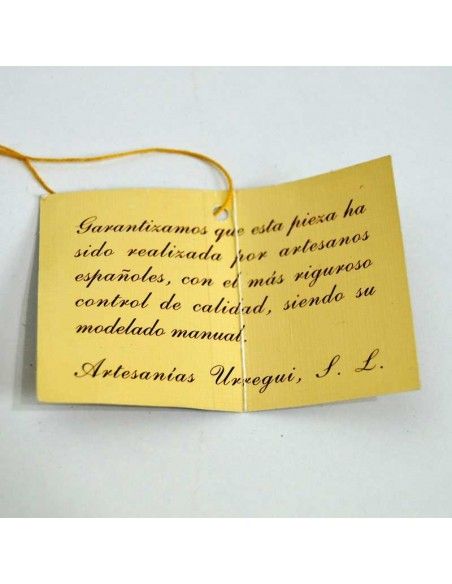 Garantizamos que esta pieza ha
sido realizada por artesanos
españoles, con el más riguroso
control de calidad, siendo su
modelado manual.
Artesanías Urregui, S. L.